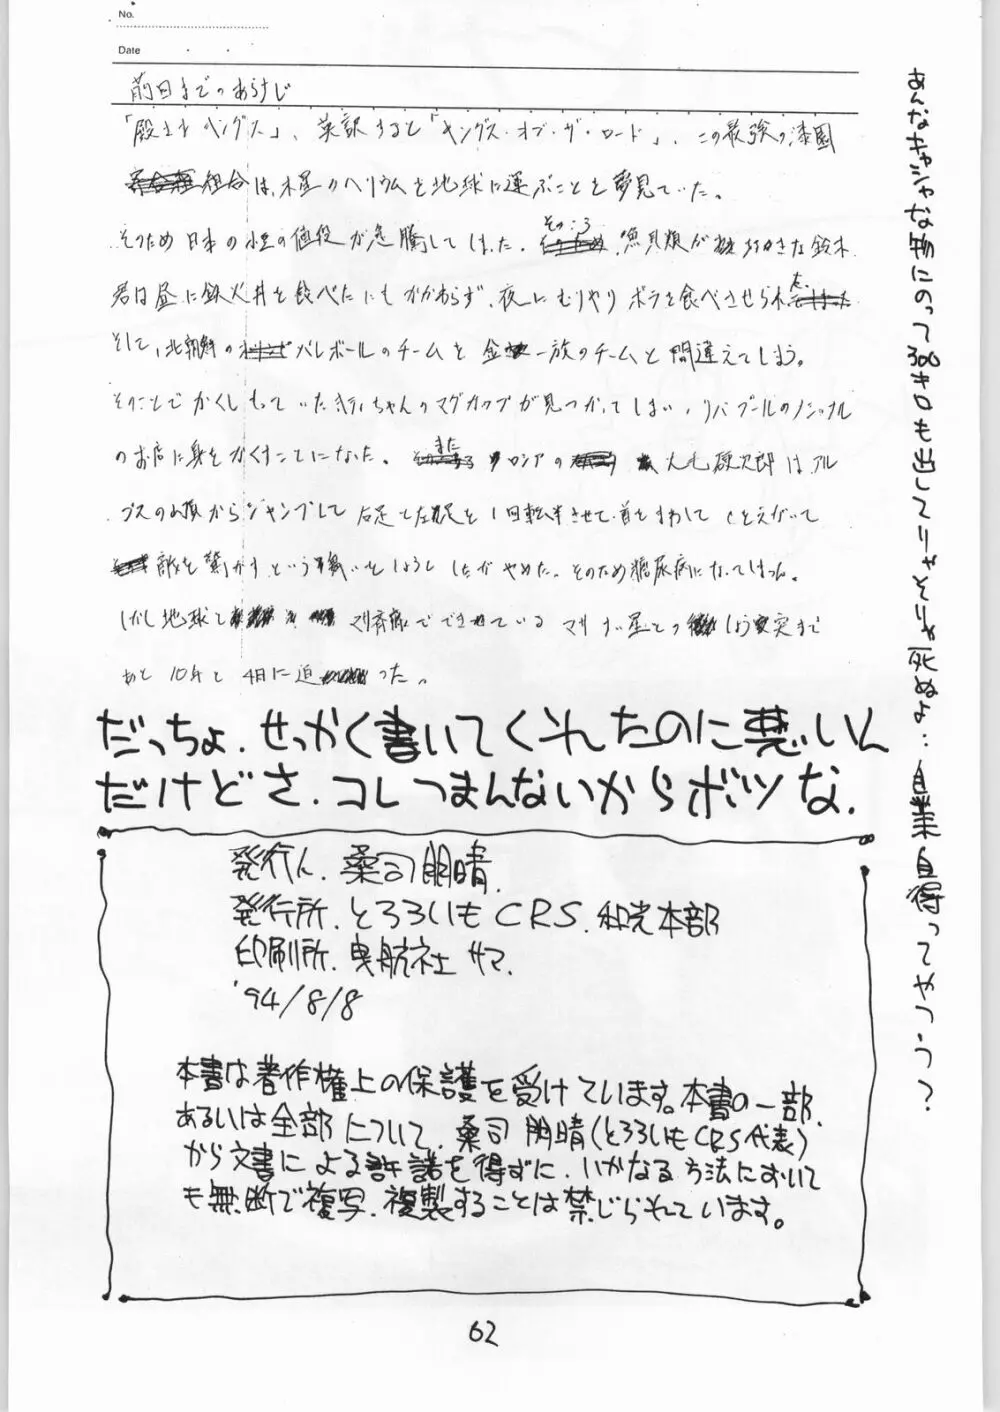 No.
Date
前日までのあらすじ
「殿さまキングス」、英訳すると「キングス・オブ・ザ・ロード」、この最強の漆園
組合は、木星のヘリウムを地球に運ぶことを夢見ていた。
そのため日本の小豆の値段が急騰してしまった。そのころ、魚貝類が大好きな鈴木
君は昼に鉄火丼を食べたにもかかわらず、夜にむりやりボラを食べさせられた。
そして、北朝鮮のバレーボールのチームを金一族のチームと間違えてしまう。
そのことでかくしもっていたキティちゃんのマグカップが見つかってしまい、リバプールの
のお店に身をかくすことになった。また ロシアの 大毛硬次郎はアル
プスの山頂からジャンプして右足と左足を1回転半させて、首をまわして
敵を驚かすという戦いをしようとしたがやめた。そのため糖尿病になってしまった。
しかし地球と でできている 星との しょう突まで
あと10年と4日に迫った。
だっちょ.せっかく書いてくれたのに悪いん
だけどさ.コレつまんないからボツな.
発行人.桑司朋晴.
発行所.とろろいもCRS.和光本部
印刷所.曳航社サマ.
'94/8/8
本書は著作権上の保護を受けています。本書の一部.
あるいは全部について.桑司朋晴(とろろいもCRS代表)
から文書による許諾を得ずに.いかなる方法において
も無断で複写.複製することは禁じられています。
あんなキャシャな物にのって300キロも出してりゃそりゃ死ぬよ…自業自得ってやつぅ?
62